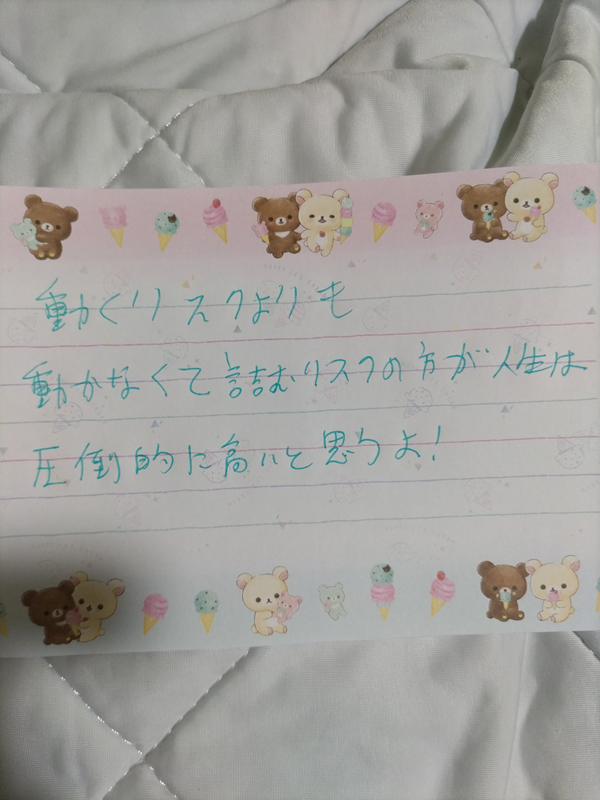 動くリスクよりも
動かなくて詰むリスクの方が人生は
圧倒的に高いと思うよ!